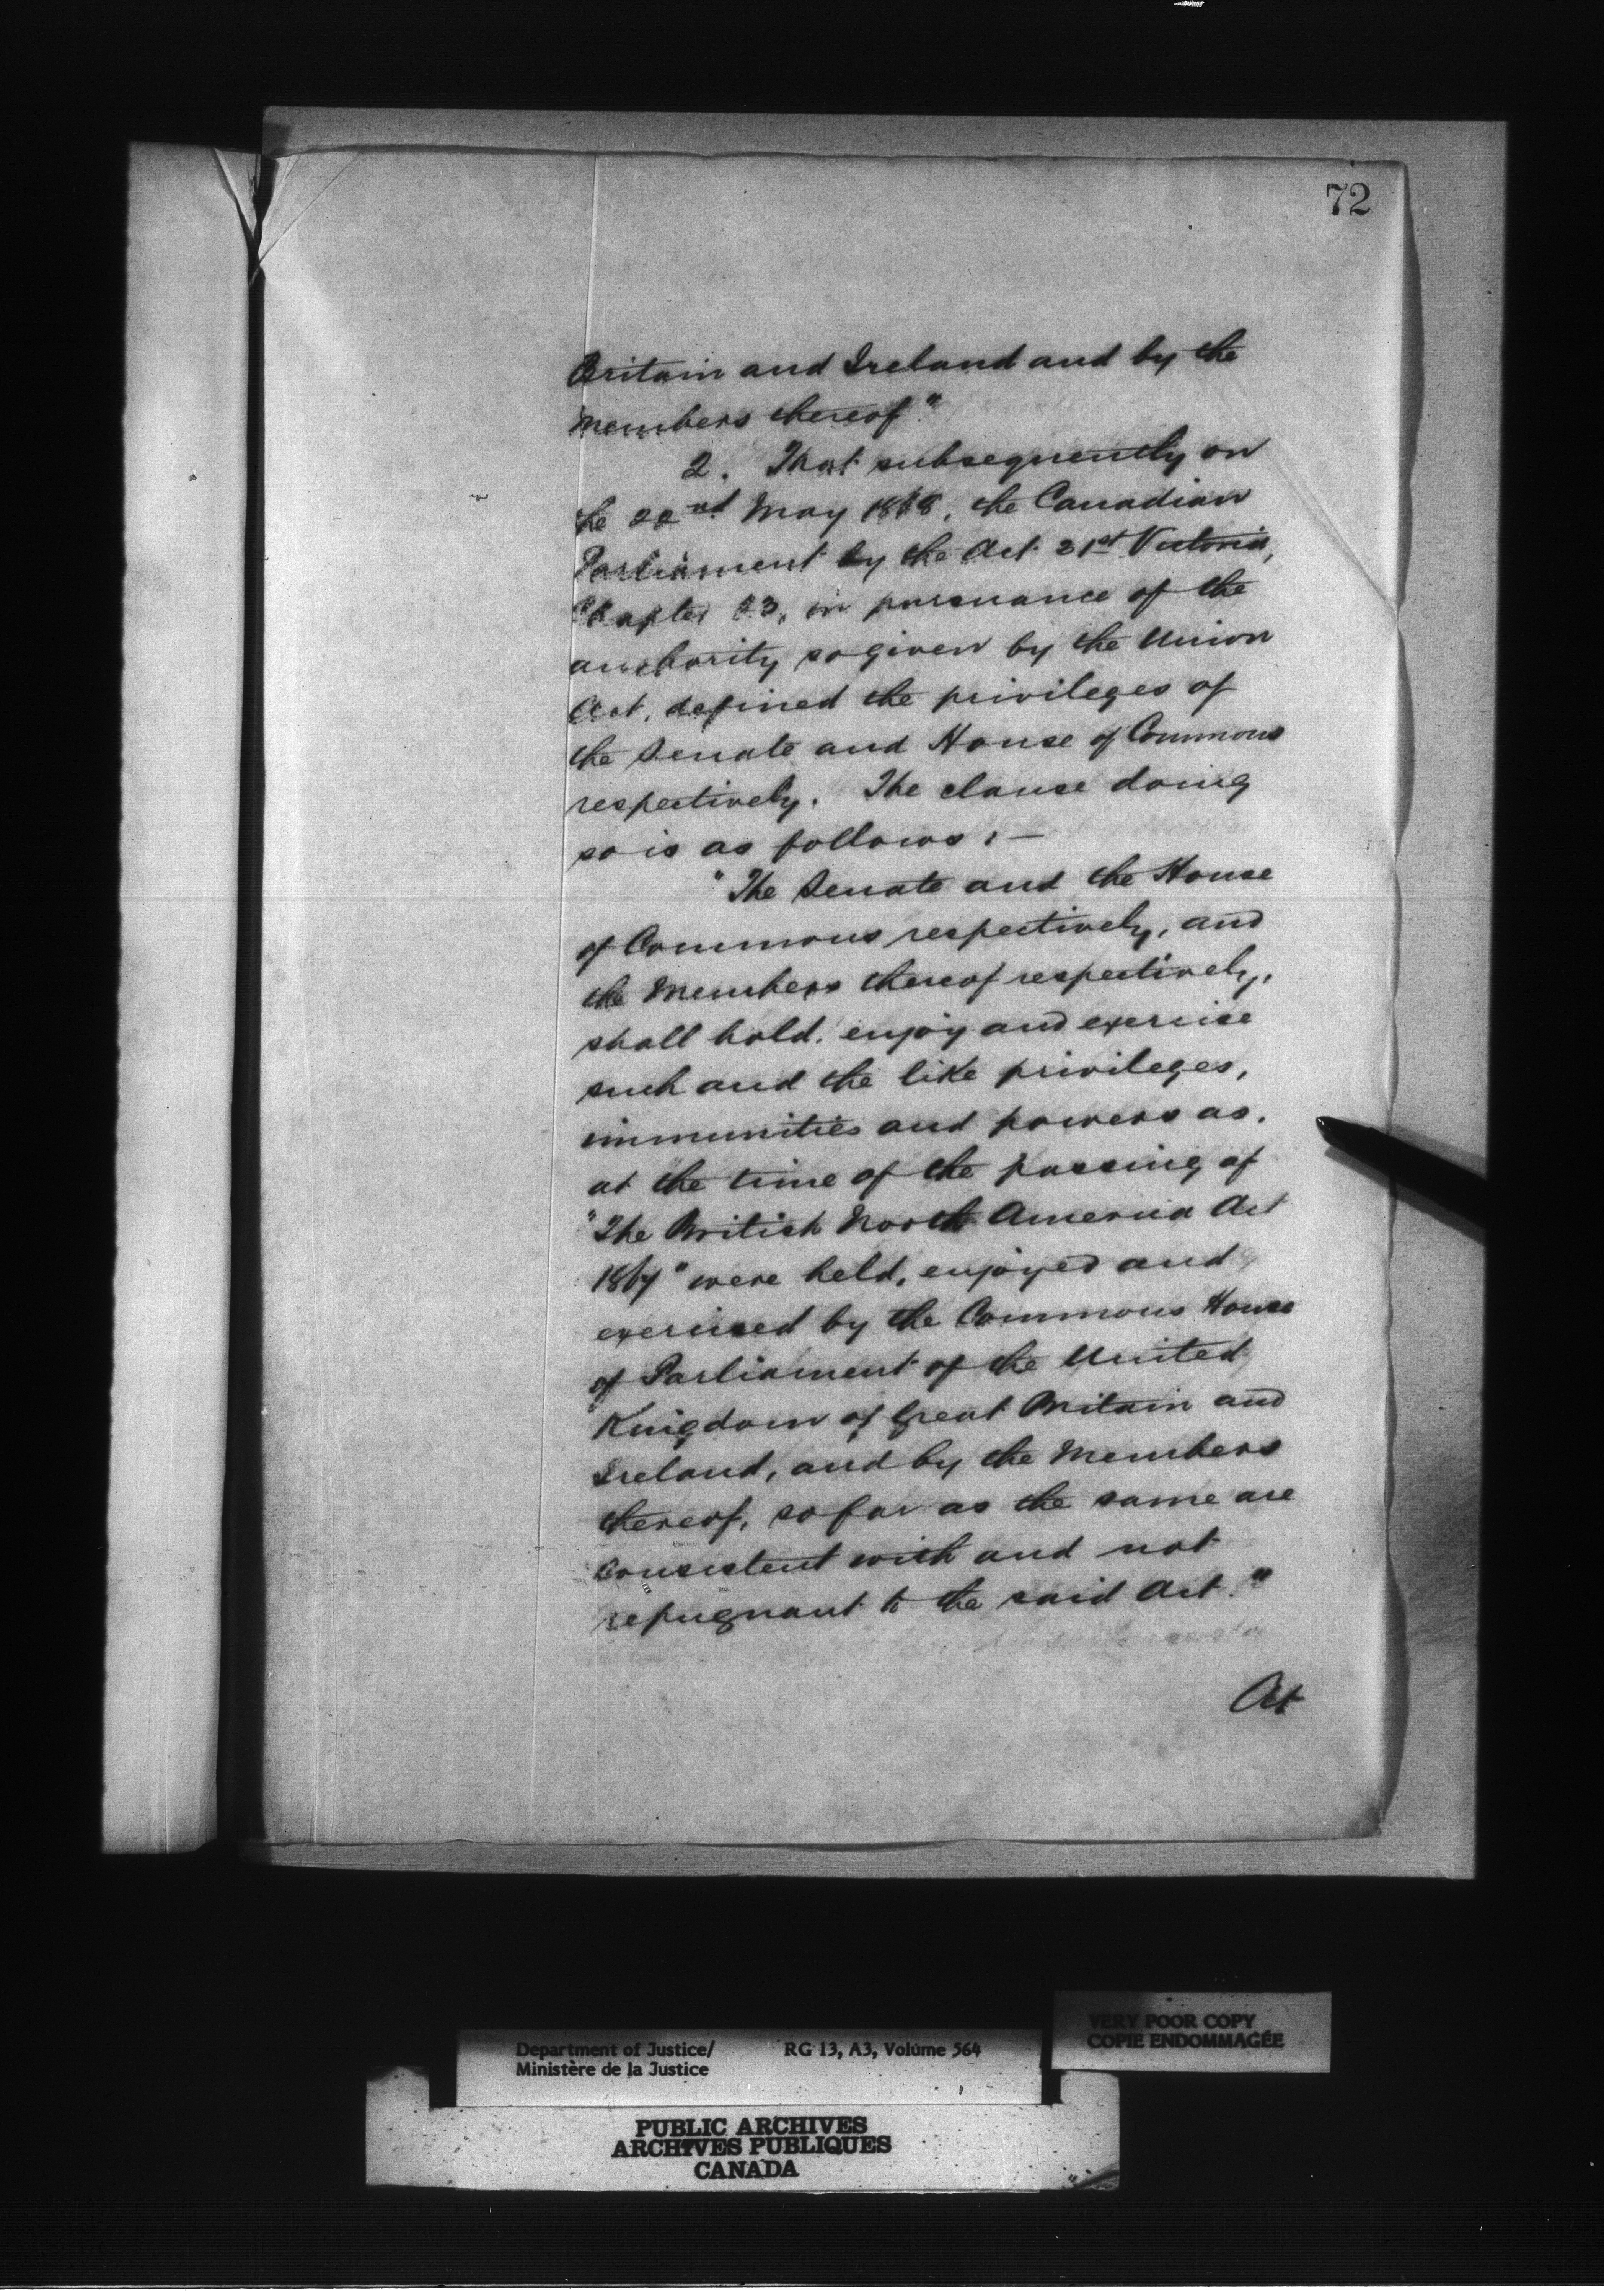 72
Britain and Ireland and by the
members thereof"
2. That subsequently on
the 22nd May 1868, the Canadian
Parliament by the Act 31st Victoria,
Chapter 23, in pursuance of the
authority so given by the Union
Act, defined the privileges of
the Senate and House of Commons
respectively. The clause doing
so is as follows:—
"The Senate and the House
of Commons respectively, and
the Members thereof respectively,
shall hold, enjoy and exercise
such and the like privileges,
immunities and powers as,
at the time of the passing of
"The British North America Act
1867" were held, enjoyed and
exercised by the Commons House
of Parliament of the United
Kingdom of Great Britain and
Ireland, and by the Members
thereof, so far as the same are
consistent with and not
repugnant to the said Act."
At
VERY POOR COPY
COPIE ENDOMMAGÉE
Department of Justice/ RG 13, A3, Volume 564
Ministère de la Justice
PUBLIC ARCHIVES
ARCHIVES PUBLIQUES
CANADA